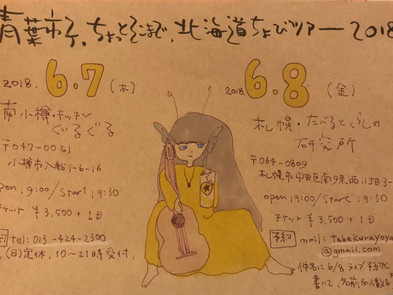 青葉市子、ちょっとそこまで、北海道ちょびツアー2018
2018. 6.7 (木)
南小樽・キッチン
ぐるぐる
〒047-0021
小樽市入船1-6-16
open 19:00/start 19:30
チケット ¥3,500+1D
tel: 013-424-2300
(日)定休、10~21時受付、
2018 6.8 (金)
札幌・たべるとくらしの
研究所
〒064-0809
札幌市中央区南9条西11丁目3-
open 19:00/start 19:30
チケット ¥3,500+1D
予約 mail: tabekurayoya
@gmail.com
件名に6/8ライブ予約と
書いて、名前